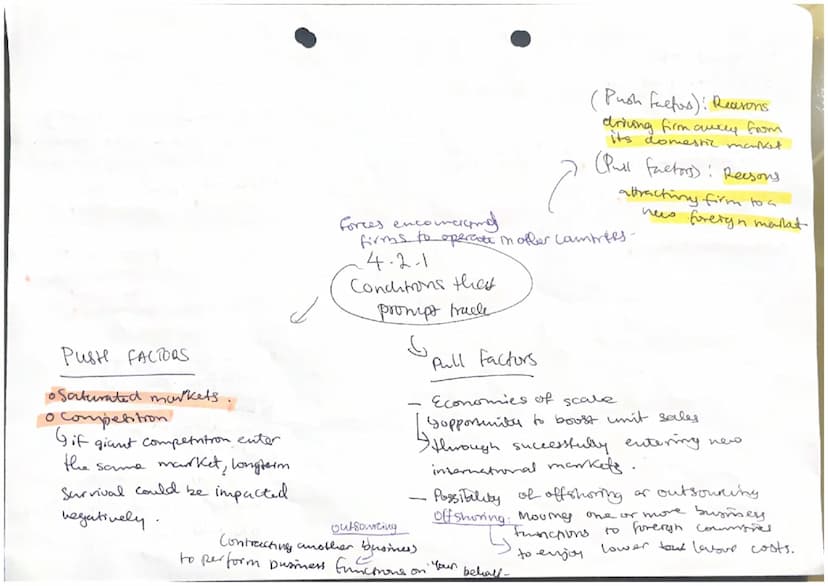 (Push Factors): Reasons
driving firm away from
its domestic market
(Pull Factors): Reasons
attracting firm to a
new foreign market
forces encouraging
firms to operate in other countries.
4.2.1
Conditions that
prompt trade
PUSH FACTORS
o Saturated markets.
o Competition
↳ if giant competition enter
the same market, longterm
survival could be impacted
negatively.
Pull Factors
— Economies of scale
↳ opportunity to boost unit sales
↳ through successfully entering new
international markets.
— Possibility of offshoring or outsourcing
offshoring: Moving one or more business
functions to foreign countries
↳ to enjoy lower labour costs.
outsourcing
Contracting another business
to perform business functions on your behalf.